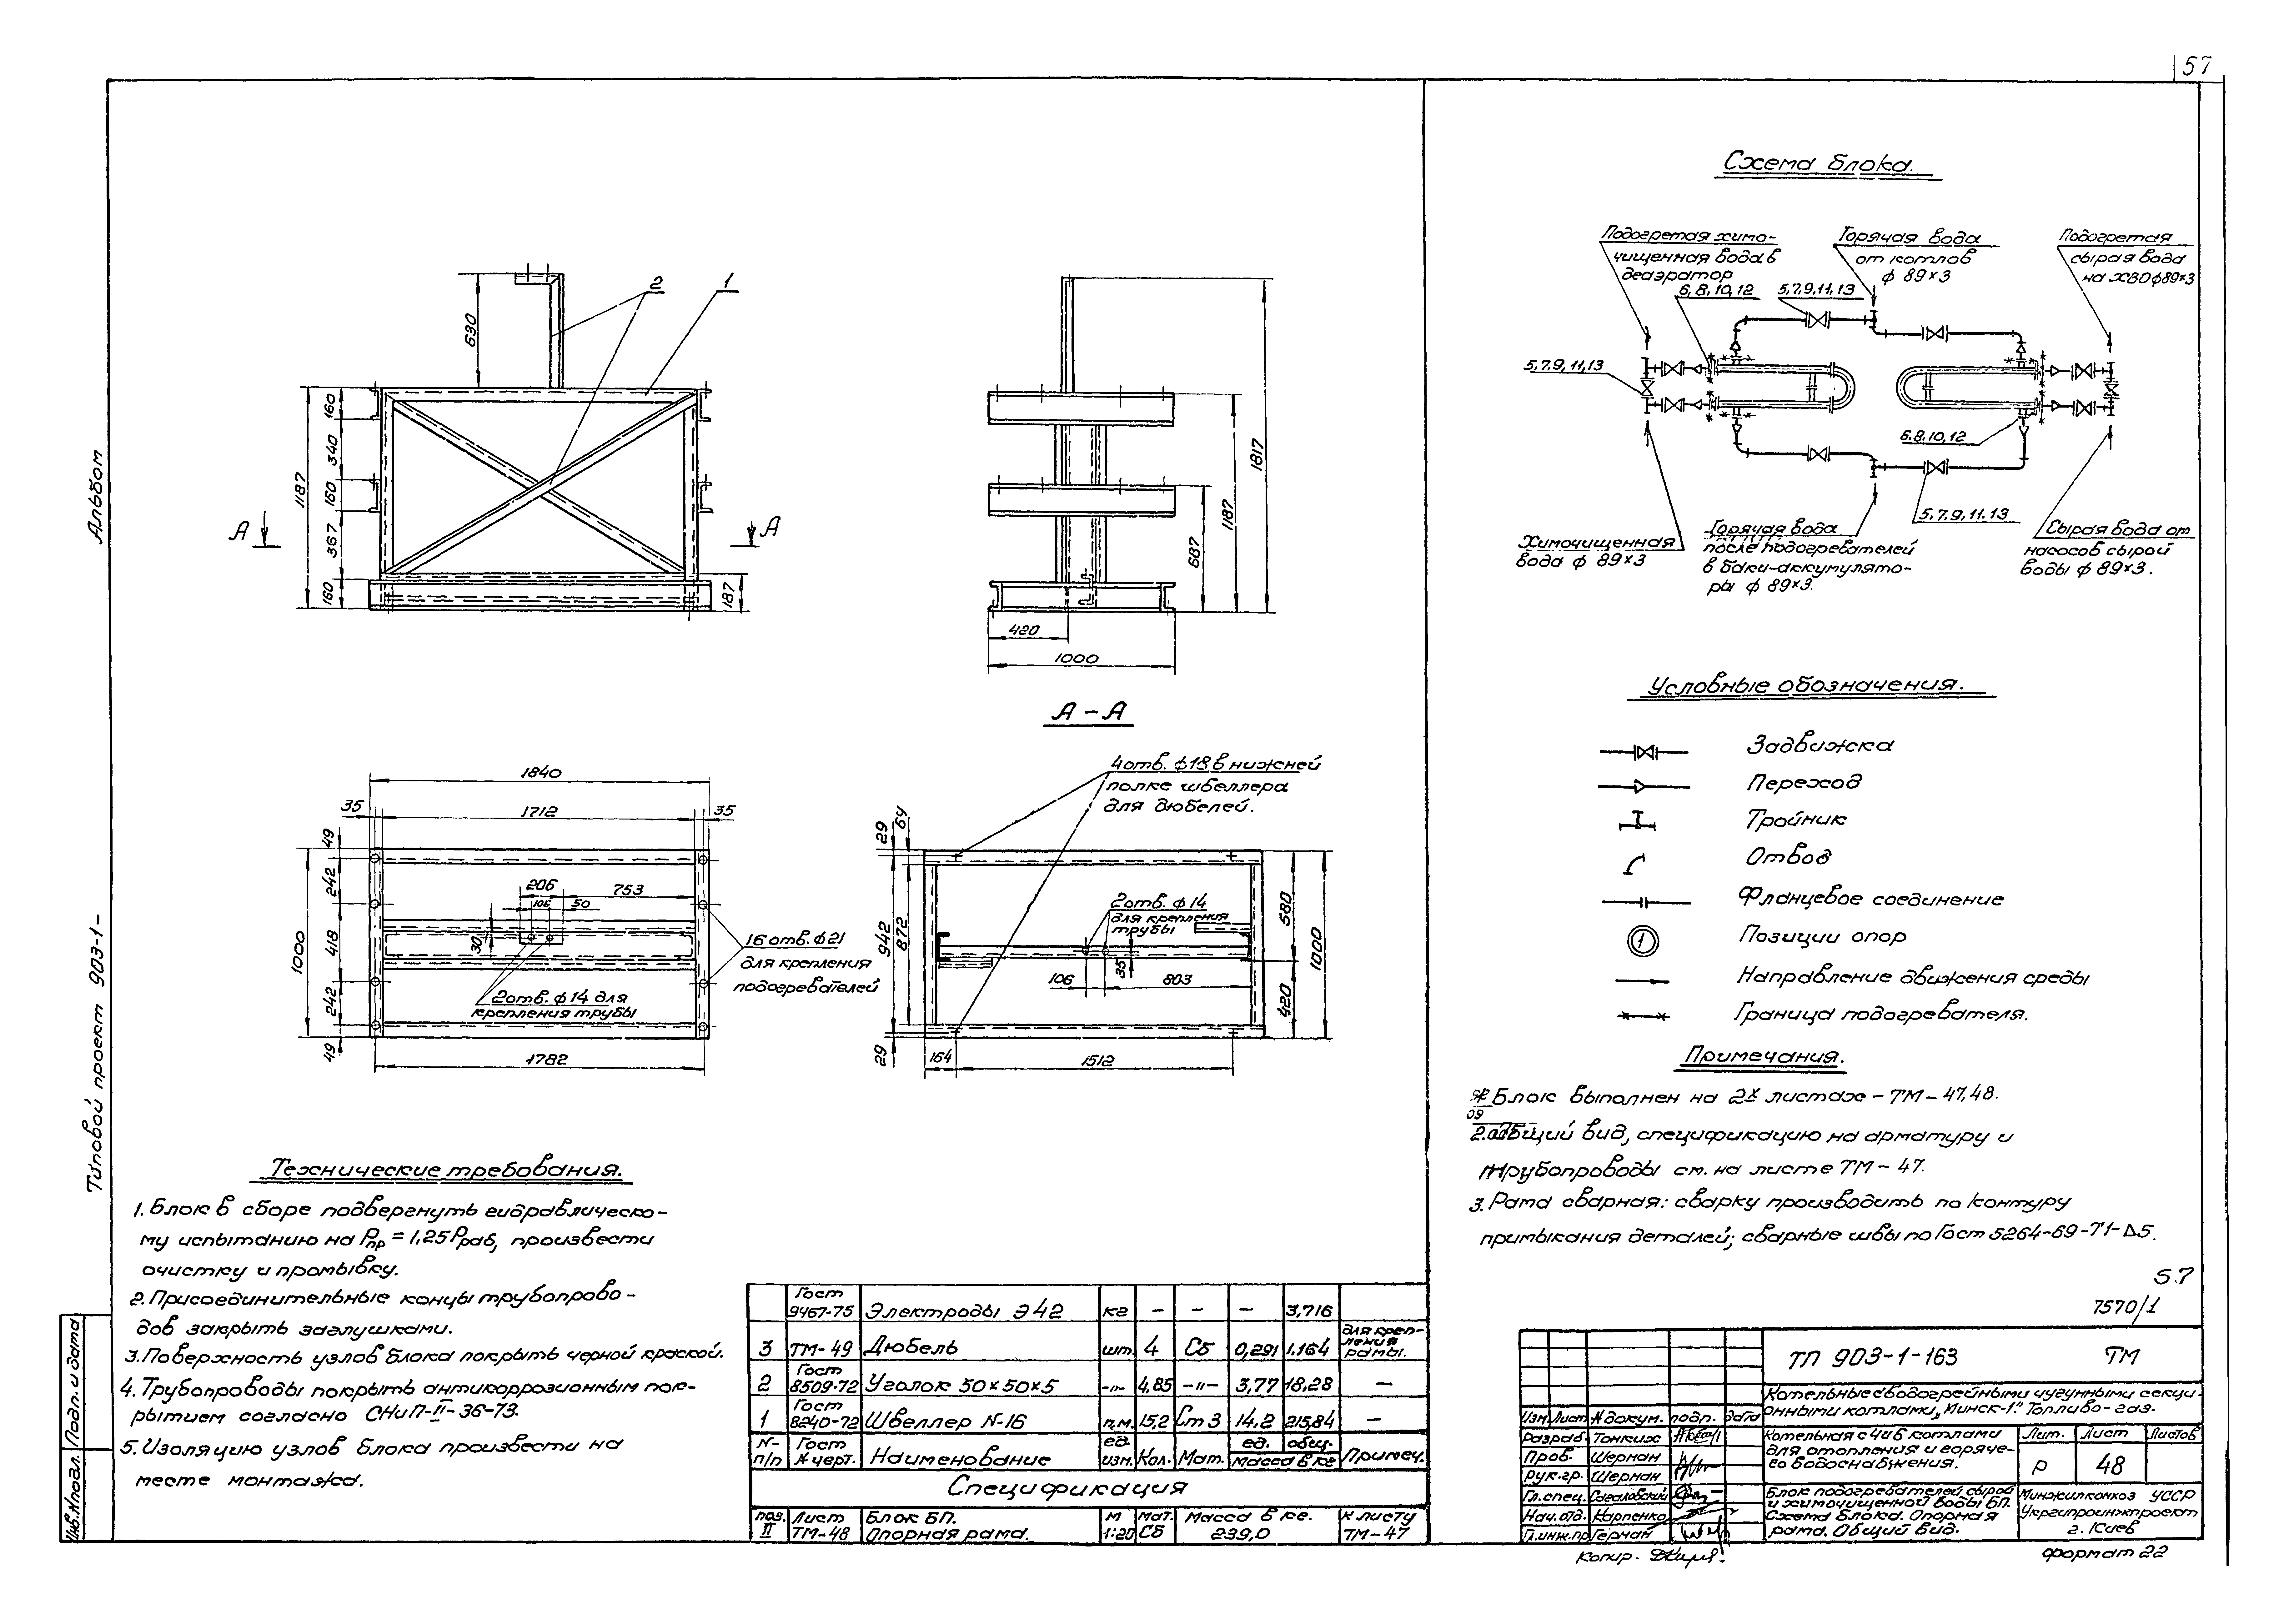 57
Альбом
Типовой проект 903-1-
Подп. и дата
Инв.№ подл.
2
1
630
1187
160
340
160
367
160
А
А
187
1817
1187
687
420
1000
А - А
1840
35
1712
35
49
242
418
242
49
1000
206
753
106
50
30
2 отв. ф 14 для
крепления трубы
16 отв. ф 21
для крепления
подогревателей
1782
4 отв. ф 18 в нижней
полке швеллера
для дюбелей.
29
64
942
872
29
2 отв. ф 14
для крепления
трубы
106
35
803
580
420
1000
164
1512
Технические требования.
1. Блок в сборе подвергнуть гидравлическо-
му испытанию на Рпр = 1,25 Рраб, произвести
очистку и промывку.
2. Присоединительные концы трубопрово-
дов закрыть заглушками.
3. Поверхность узлов блока покрыть черной краской.
4. Трубопроводы покрыть антикоррозионным пок-
рытием согласно СНиП-II-36-73.
5. Изоляцию узлов блока произвести на
месте монтажа.
Гост 9467-75 Электроды Э 42 кг — — — 3,716
3 ТМ-49 Дюбель шт. 4 Сб 0,291 1,164 для креп-
ления
рамы.
2 Гост 8509-72 Уголок 50×50×5 -"- 4,85 -"- 3,77 18,28 —
1 Гост 8240-72 Швеллер N-16 п.м. 15,2 Ст 3 14,2 215,84 —
N- п/п Гост N черт. Наименование ед. изм. Кол. Мат. ед. общ. Масса в кг Примеч.
Спецификация
поз. II Лист ТМ-48 Блок БП. Опорная рама. М 1:20 Мат. Сб Масса в кг. 239,0 К листу ТМ-47
Схема блока.
Подогретая химо-
чищенная вода в
деаэратор
Горячая вода
от котлов
ф 89×3
Подогретая
сырая вода
на ХВО ф 89×3
6, 8, 10, 12
5, 7, 9, 11, 13
5, 7, 9, 11, 13
6, 8, 10, 12
5, 7, 9, 11, 13
Химочищенная
вода ф 89×3
Горячая вода
после подогревателей
в баки-аккумулято-
ры ф 89×3.
Сырая вода от
насосов сырой
воды ф 89×3.
Условные обозначения.
Задвижка
Переход
Тройник
Отвод
Фланцевое соединение
1
Позиции опор
Направление движения среды
Граница подогревателя.
Примечания.
Блок выполнен на 2х листах - ТМ - 47, 48.
09
2. Общий вид, спецификацию на арматуру и
трубопроводы см. на листе ТМ - 47.
3. Рама сварная: сварку производить по контуру
примыкания деталей; сварные швы по Гост 5264-69-Т1-Δ5.
5.7
7570/1
ТП 903-1-163 ТМ
Котельные с водогрейными чугунными секци-
онными котлами „Минск-1". Топливо - газ.
Изм. Лист N докум. подп. дата
Разраб. Тонких
Пров. Шерман
Рук.гр. Шерман
Гл.спец.
Нач. отд. Карпенко
Гл.инж.пр Герман
Котельная с 4 и 6 котлами
для отопления и горяче-
го водоснабжения.
Лит. Лист Листов
Р 48
Блок подогревателей сырой
и химочищенной воды БП.
Схема блока. Опорная
рама. Общий вид.
Минжилкомхоз УССР
Укргипроинжпроект
г. Киев
Копир.
формат 22